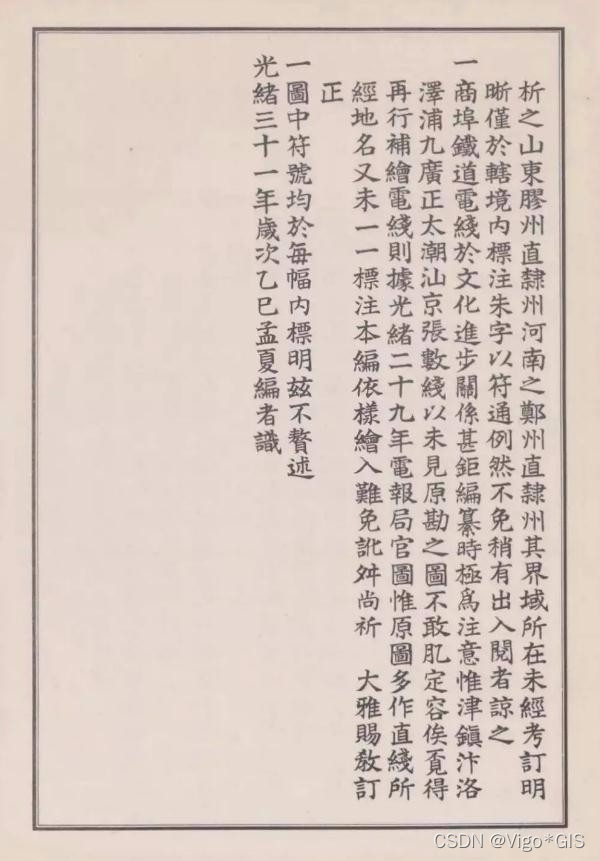 析之山東膠州直隸州河南之鄭州直隸州其界域所在未經考訂明
晰僅於轄境內標注朱字以符通例然不免稍有出入閱者諒之
一商埠鐵道電綫於文化進步關係甚鉅編纂時極爲注意惟津鎭汴洛
澤浦九廣正太潮汕京張數綫以未見原勘之圖不敢肊定容俟覔得
再行補繪電綫則據光緒二十九年電報局官圖惟原圖多作直綫所
經地名又未一一標注本編依樣繪入難免訛舛尚祈　大雅賜敎訂
正
一圖中符號均於每幅內標明玆不贅述
光緒三十一年歲次乙巳孟夏編者識
CSDN @Vigo*GIS